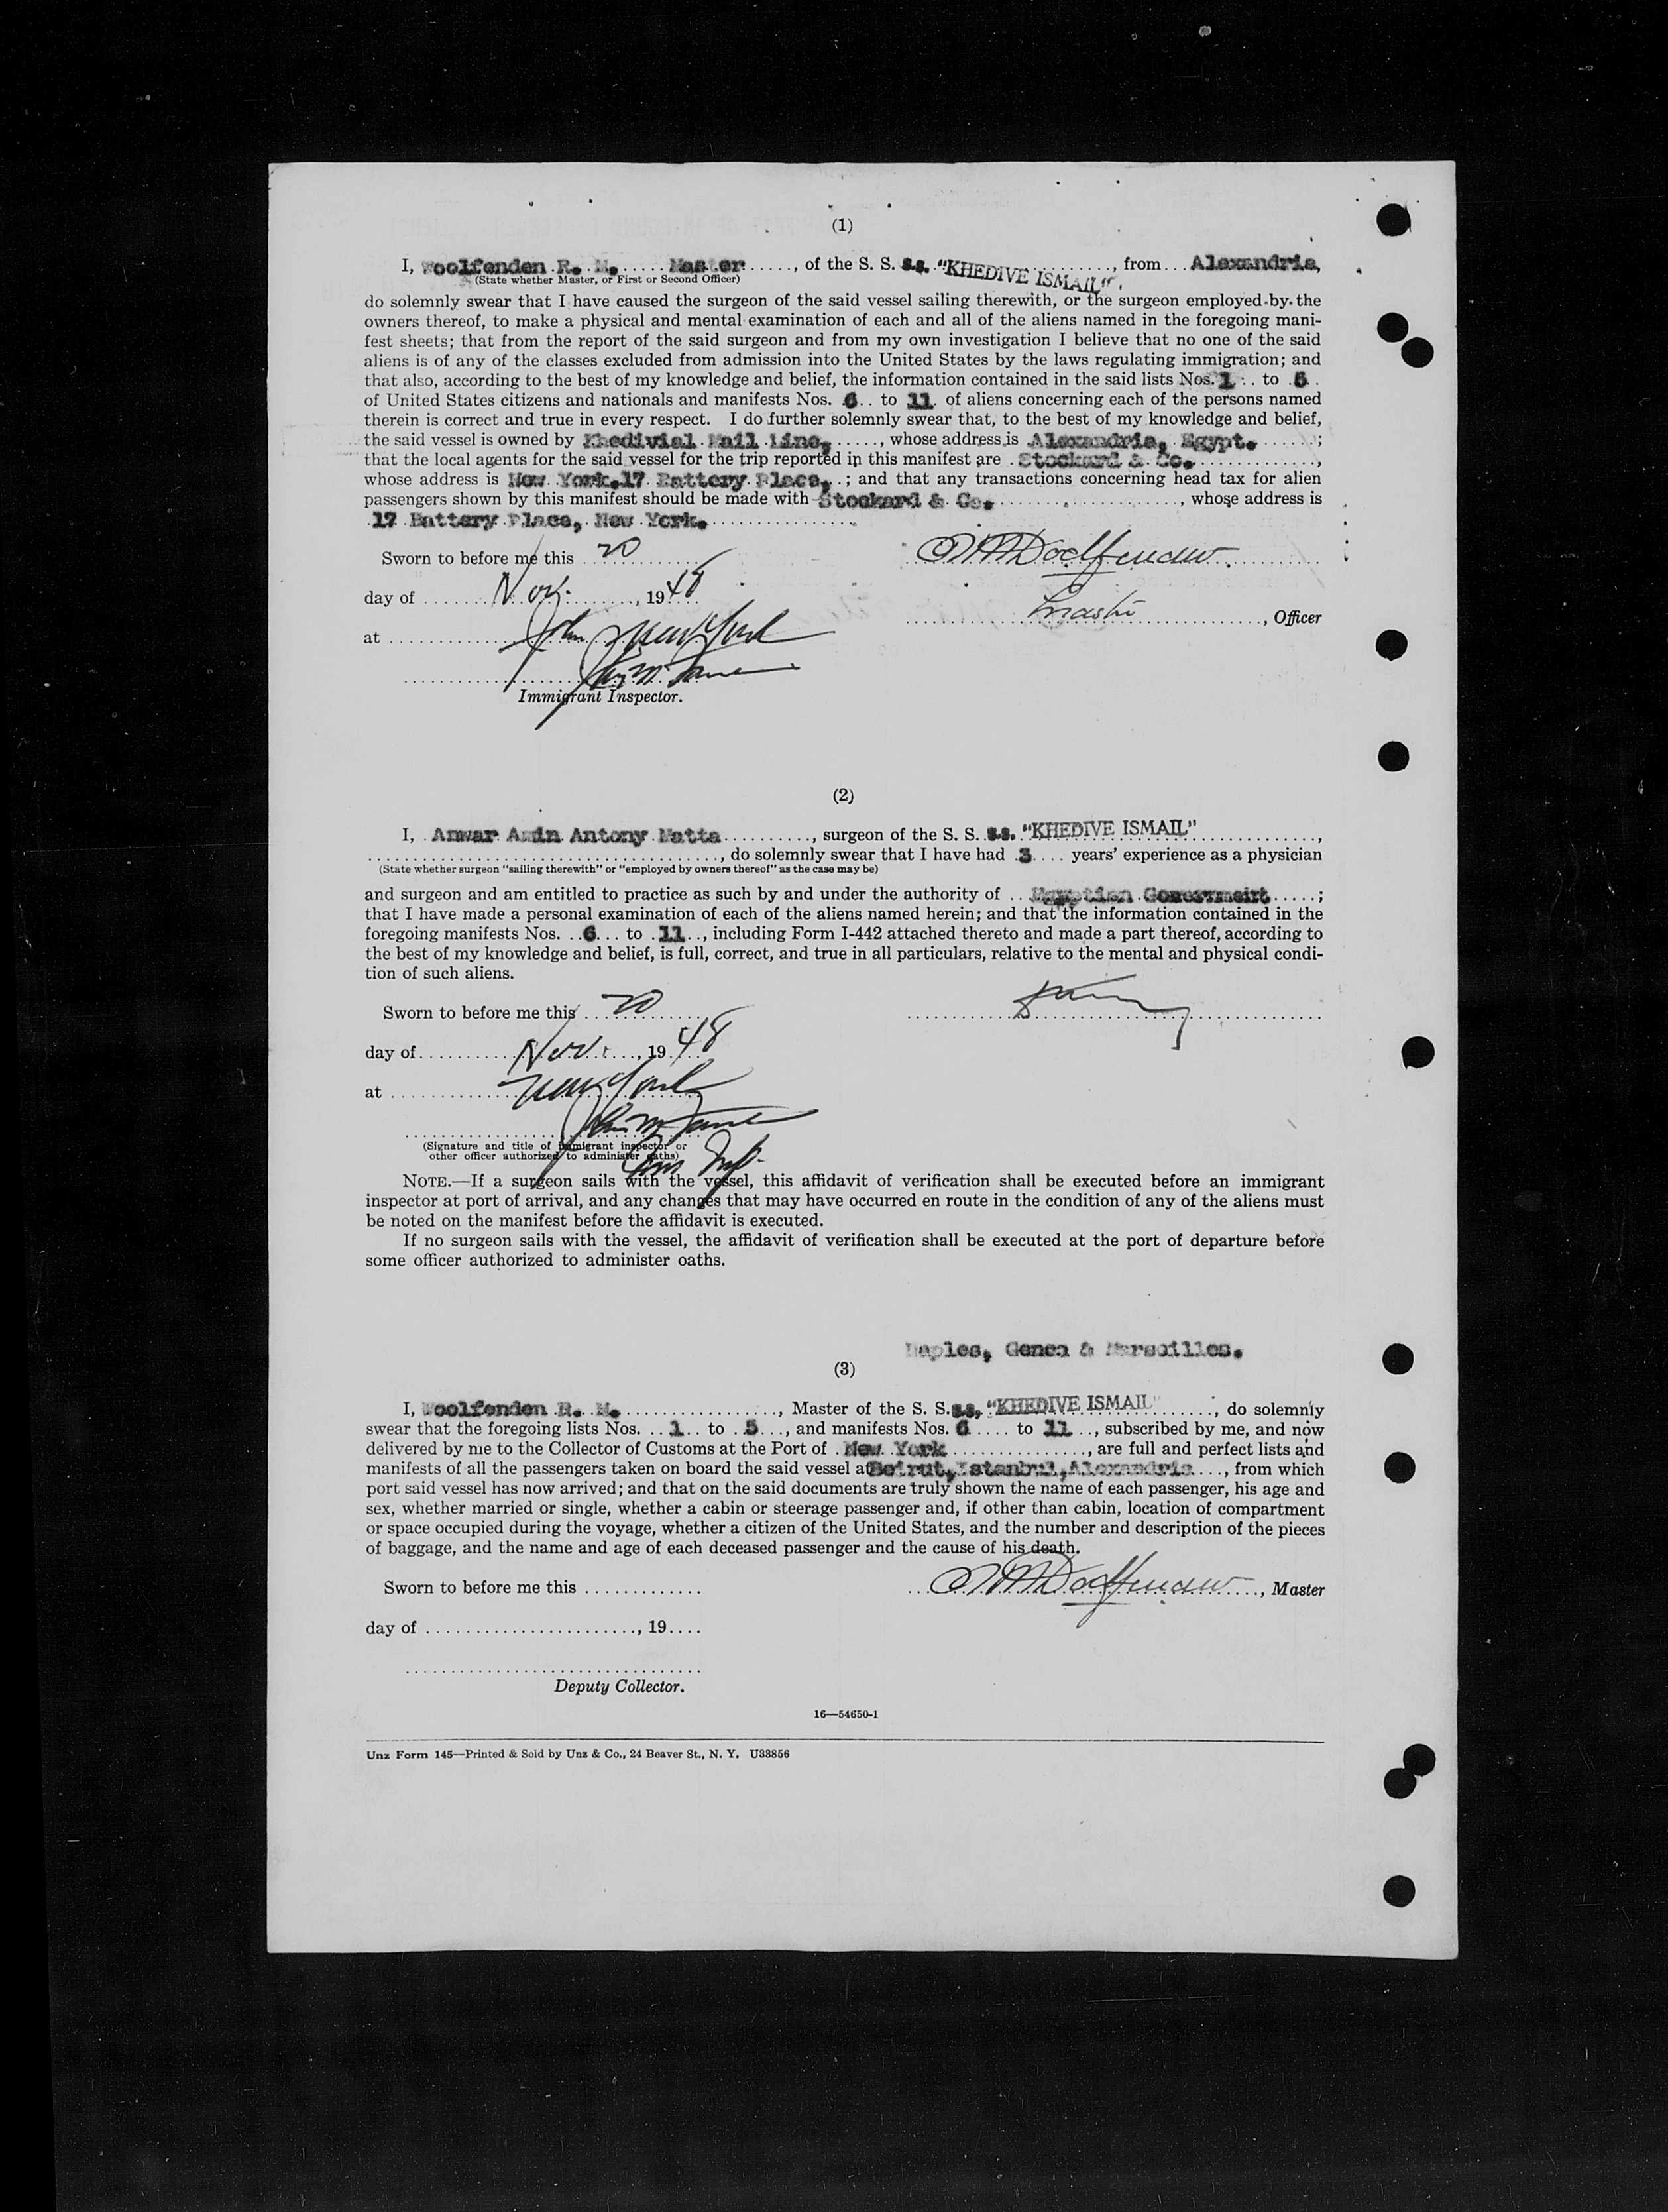 (1)
I, Woolfenden R. M. ..... Master ....., of the S. S. s.s. "KHEDIVE ISMAIL" ..........., from ... Alexandria,
(State whether Master, or First or Second Officer)
do solemnly swear that I have caused the surgeon of the said vessel sailing therewith, or the surgeon employed by the
owners thereof, to make a physical and mental examination of each and all of the aliens named in the foregoing mani-
fest sheets; that from the report of the said surgeon and from my own investigation I believe that no one of the said
aliens is of any of the classes excluded from admission into the United States by the laws regulating immigration; and
that also, according to the best of my knowledge and belief, the information contained in the said lists Nos. 1 .. to . 5 .
of United States citizens and nationals and manifests Nos. 6 .. to 11 . of aliens concerning each of the persons named
therein is correct and true in every respect. I do further solemnly swear that, to the best of my knowledge and belief,
the said vessel is owned by Khedivial Mail Line, ....., whose address is Alexandria, Egypt. ......;
that the local agents for the said vessel for the trip reported in this manifest are . Stockard & Co. .............,
whose address is New York.17 Battery Place, .; and that any transactions concerning head tax for alien
passengers shown by this manifest should be made with Stockard & Co. ..................., whose address is
17 Battery Place, New York. ...............
Sworn to before me this .. 20 ..........
day of ....... Nov. ........, 1948
at ............. New York
Master ............, Officer
Immigrant Inspector.
(2)
I, Anwar Amin Antony Matta .........., surgeon of the S. S. s.s. "KHEDIVE ISMAIL" ..............,
....................................., do solemnly swear that I have had . 3 .... years' experience as a physician
(State whether surgeon "sailing therewith" or "employed by owners thereof" as the case may be)
and surgeon and am entitled to practice as such by and under the authority of .. Egyptian Government .....;
that I have made a personal examination of each of the aliens named herein; and that the information contained in the
foregoing manifests Nos. .. 6 ... to . 11 .., including Form I-442 attached thereto and made a part thereof, according to
the best of my knowledge and belief, is full, correct, and true in all particulars, relative to the mental and physical condi-
tion of such aliens.
Sworn to before me this .. 20 ........
day of ........... Nov. ...., 19 48
at ............ New York
(Signature and title of immigrant inspector or
other officer authorized to administer oaths)
NOTE.—If a surgeon sails with the vessel, this affidavit of verification shall be executed before an immigrant
inspector at port of arrival, and any changes that may have occurred en route in the condition of any of the aliens must
be noted on the manifest before the affidavit is executed.
If no surgeon sails with the vessel, the affidavit of verification shall be executed at the port of departure before
some officer authorized to administer oaths.
Naples, Genoa & Marseilles.
(3)
I, Woolfenden R. M. ................, Master of the S. S. s.s. "KHEDIVE ISMAIL" ......, do solemnly
swear that the foregoing lists Nos. .. 1 .. to .. 5 ..., and manifests Nos. 6 .... to 11 .., subscribed by me, and now
delivered by me to the Collector of Customs at the Port of . New York .............., are full and perfect lists and
manifests of all the passengers taken on board the said vessel at Beirut, Istanbul, Alexandria ...., from which
port said vessel has now arrived; and that on the said documents are truly shown the name of each passenger, his age and
sex, whether married or single, whether a cabin or steerage passenger and, if other than cabin, location of compartment
or space occupied during the voyage, whether a citizen of the United States, and the number and description of the pieces
of baggage, and the name and age of each deceased passenger and the cause of his death.
Sworn to before me this ............
RM Woolfenden ..., Master
day of ......................, 19....
Deputy Collector.
16—54650-1
Unz Form 145—Printed & Sold by Unz & Co., 24 Beaver St., N. Y. U33856